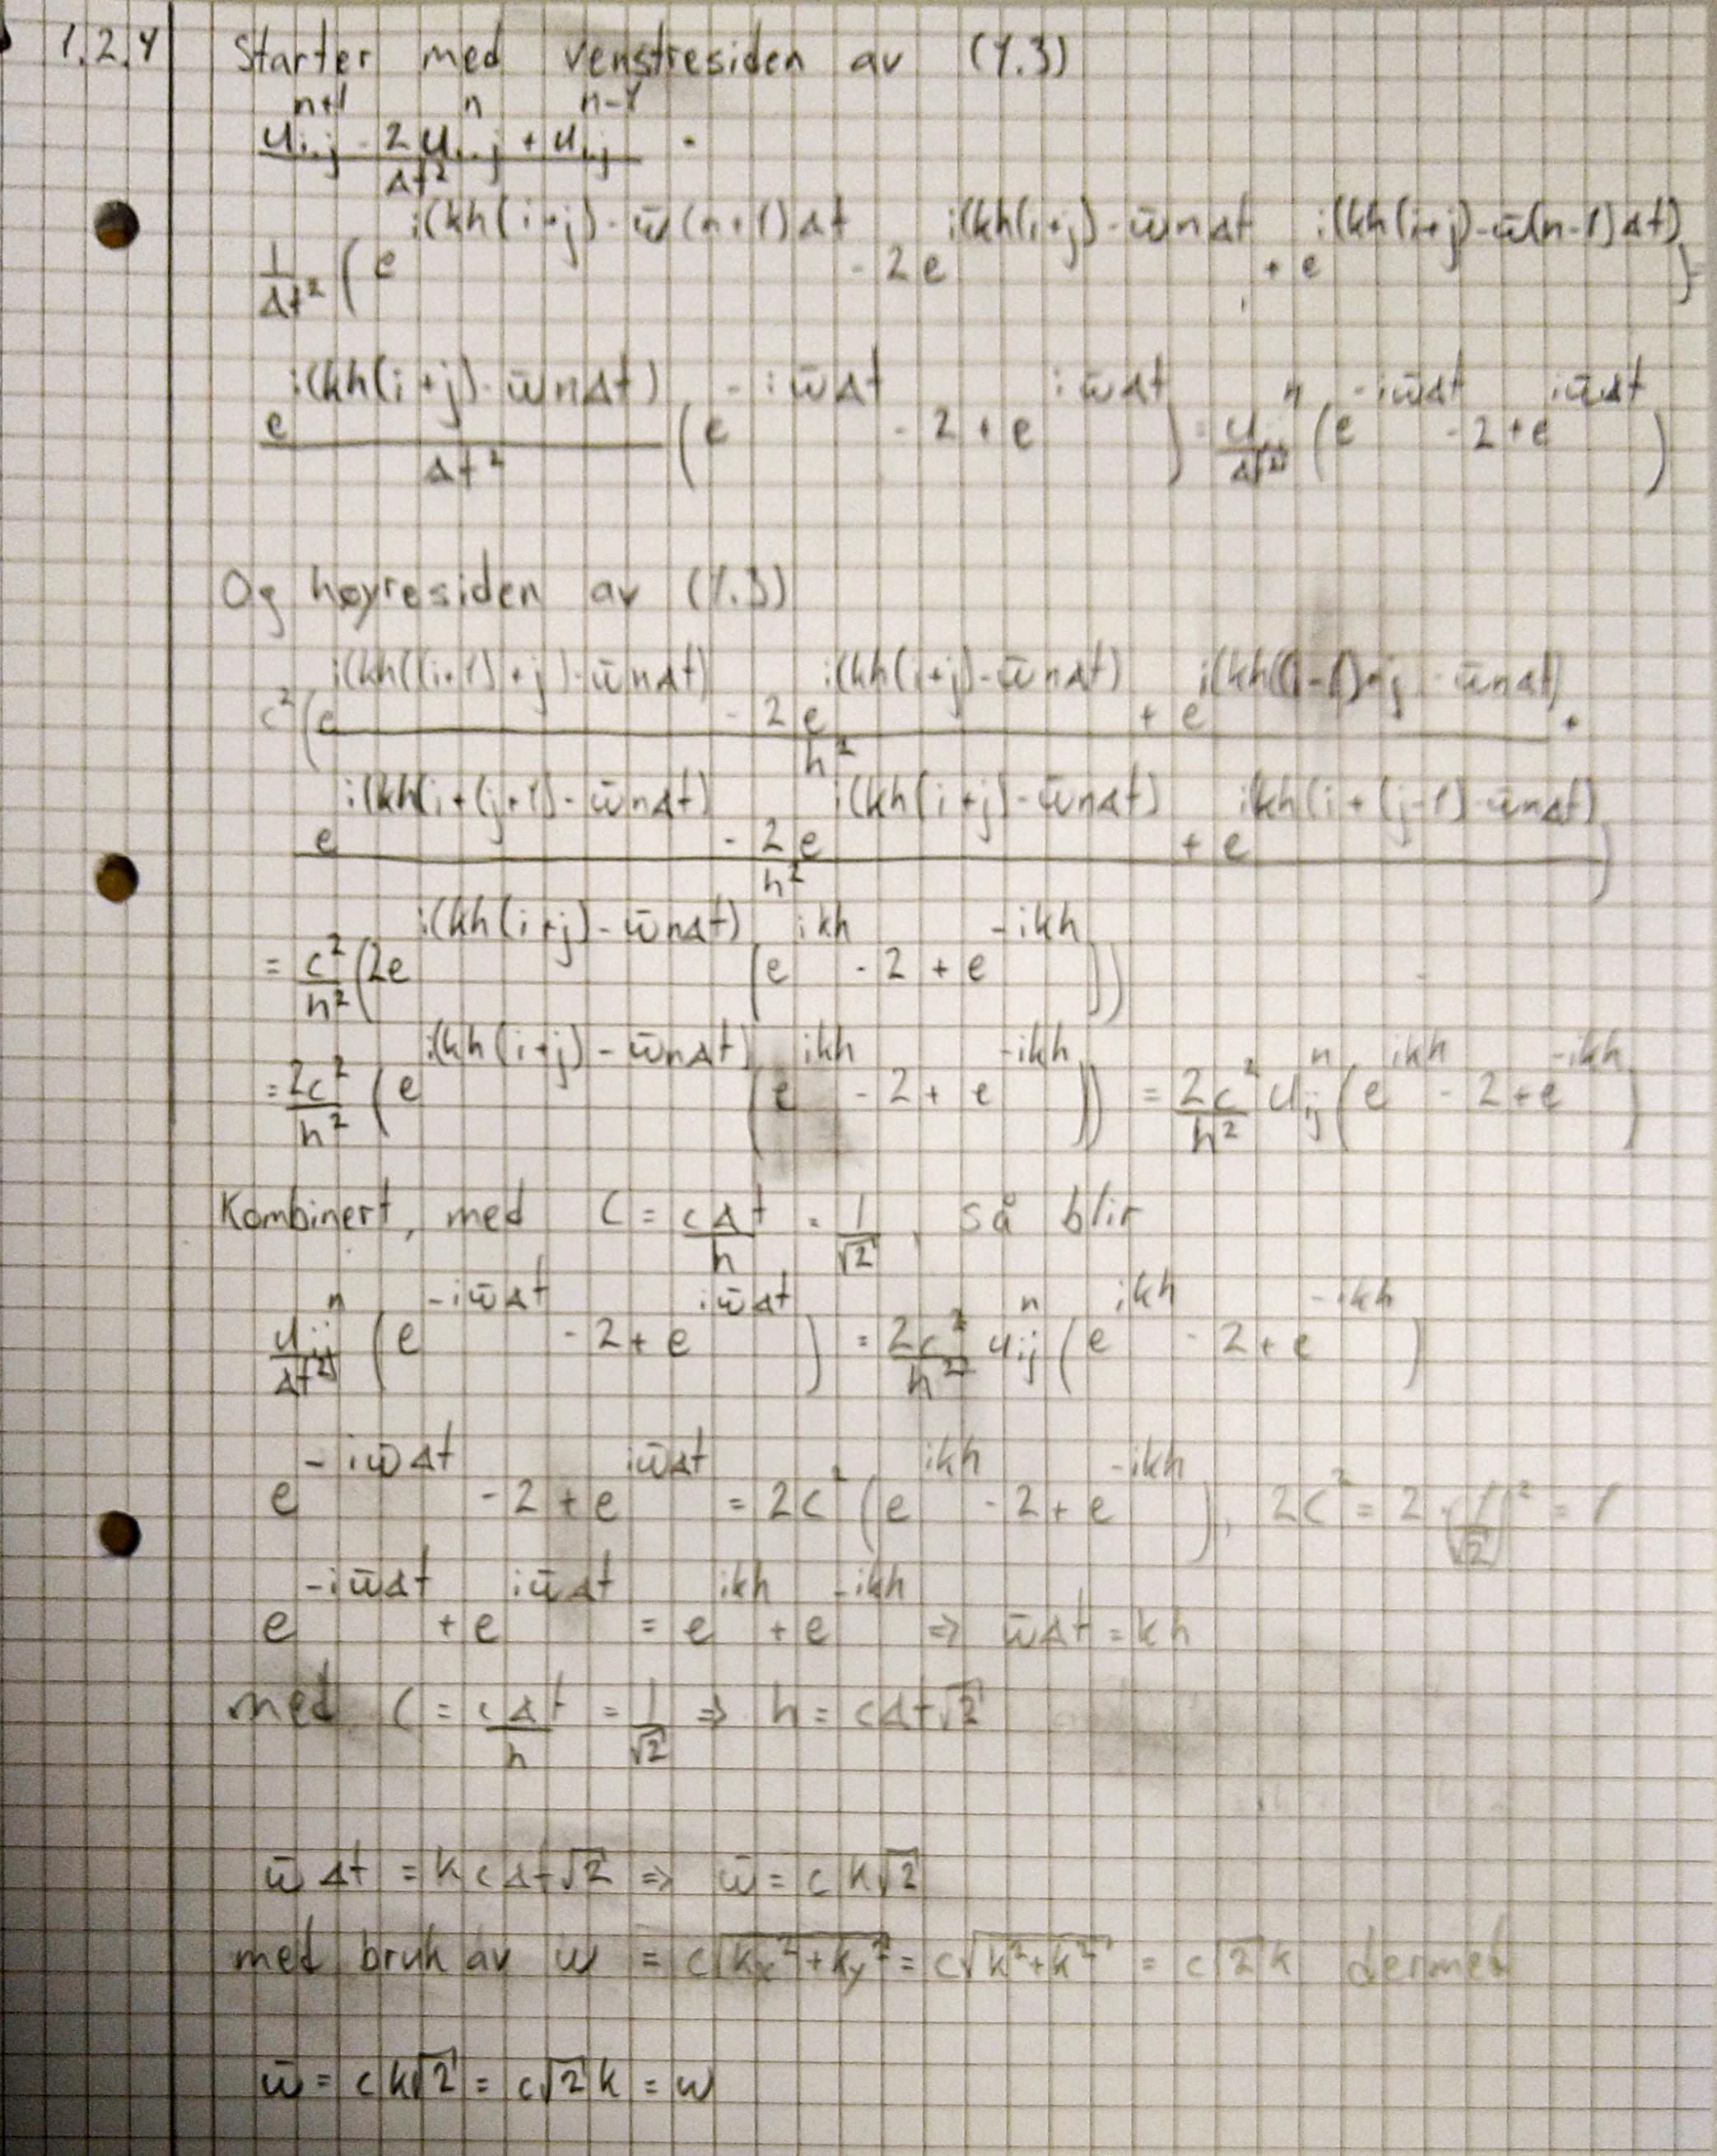 1.2.4 Starter med venstresiden av (1.3)
\frac{u_{ij}^{n+1} - 2u_{ij}^{n} + u_{ij}^{n-1}}{Δt^2} =
\frac{1}{Δt^2} (e^{i(kh(i+j)-\bar{w}(n+1)Δt} - 2e^{i(kh(i+j)-\bar{w}nΔt} + e^{i(kh(i+j)-\bar{w}(n-1)Δt)}) =
\frac{e^{i(kh(i+j)-\bar{w}nΔt)}}{Δt^2} (e^{-i\bar{w}Δt} - 2 + e^{i\bar{w}Δt}) = \frac{u_{ij}^{n}}{Δt^2} (e^{-i\bar{w}Δt} - 2 + e^{i\bar{w}Δt})
Og høyresiden av (1.3)
c^2(\frac{e^{i(kh((i+1)+j)-\bar{w}nΔt)} - 2e^{i(kh(i+j)-\bar{w}nΔt)} + e^{i(kh((i-1)+j-\bar{w}nΔt)}}{h^2} +
\frac{e^{i(kh(i+(j+1)-\bar{w}nΔt)} - 2e^{i(kh(i+j)-\bar{w}nΔt)} + e^{i(kh(i+(j-1)-\bar{w}nΔt)}}{h^2})
= \frac{c^2}{h^2}(2e^{i(kh(i+j)-\bar{w}nΔt)} (e^{ikh} - 2 + e^{-ikh}))
= \frac{2c^2}{h^2} (e^{i(kh(i+j)-\bar{w}nΔt)} (e^{ikh} - 2 + e^{-ikh})) = \frac{2c^2}{h^2} u_{ij}^{n} (e^{ikh} - 2 + e^{-ikh})
Kombinert, med C = \frac{cΔt}{h} = \frac{1}{\sqrt{2}}, så blir
\frac{u_{ij}^{n}}{Δt^2} (e^{-i\bar{w}Δt} - 2 + e^{i\bar{w}Δt}) = \frac{2c^2}{h^2} u_{ij}^{n} (e^{ikh} - 2 + e^{-ikh})
e^{-i\bar{w}Δt} - 2 + e^{i\bar{w}Δt} = 2C^2 (e^{ikh} - 2 + e^{-ikh}), 2C^2 = 2 \cdot (\frac{1}{\sqrt{2}})^2 = 1
e^{-i\bar{w}Δt} + e^{i\bar{w}Δt} = e^{ikh} + e^{-ikh} ⇒ \bar{w}Δt = kh
med C = \frac{cΔt}{h} = \frac{1}{\sqrt{2}} ⇒ h = cΔt\sqrt{2}
\bar{w}Δt = kcΔt\sqrt{2} ⇒ \bar{w} = ck\sqrt{2}
med bruk av w = c\sqrt{k_x^2+k_y^2} = c\sqrt{k^2+k^2} = c\sqrt{2}k dermed
\bar{w} = ck\sqrt{2} = c\sqrt{2}k = w